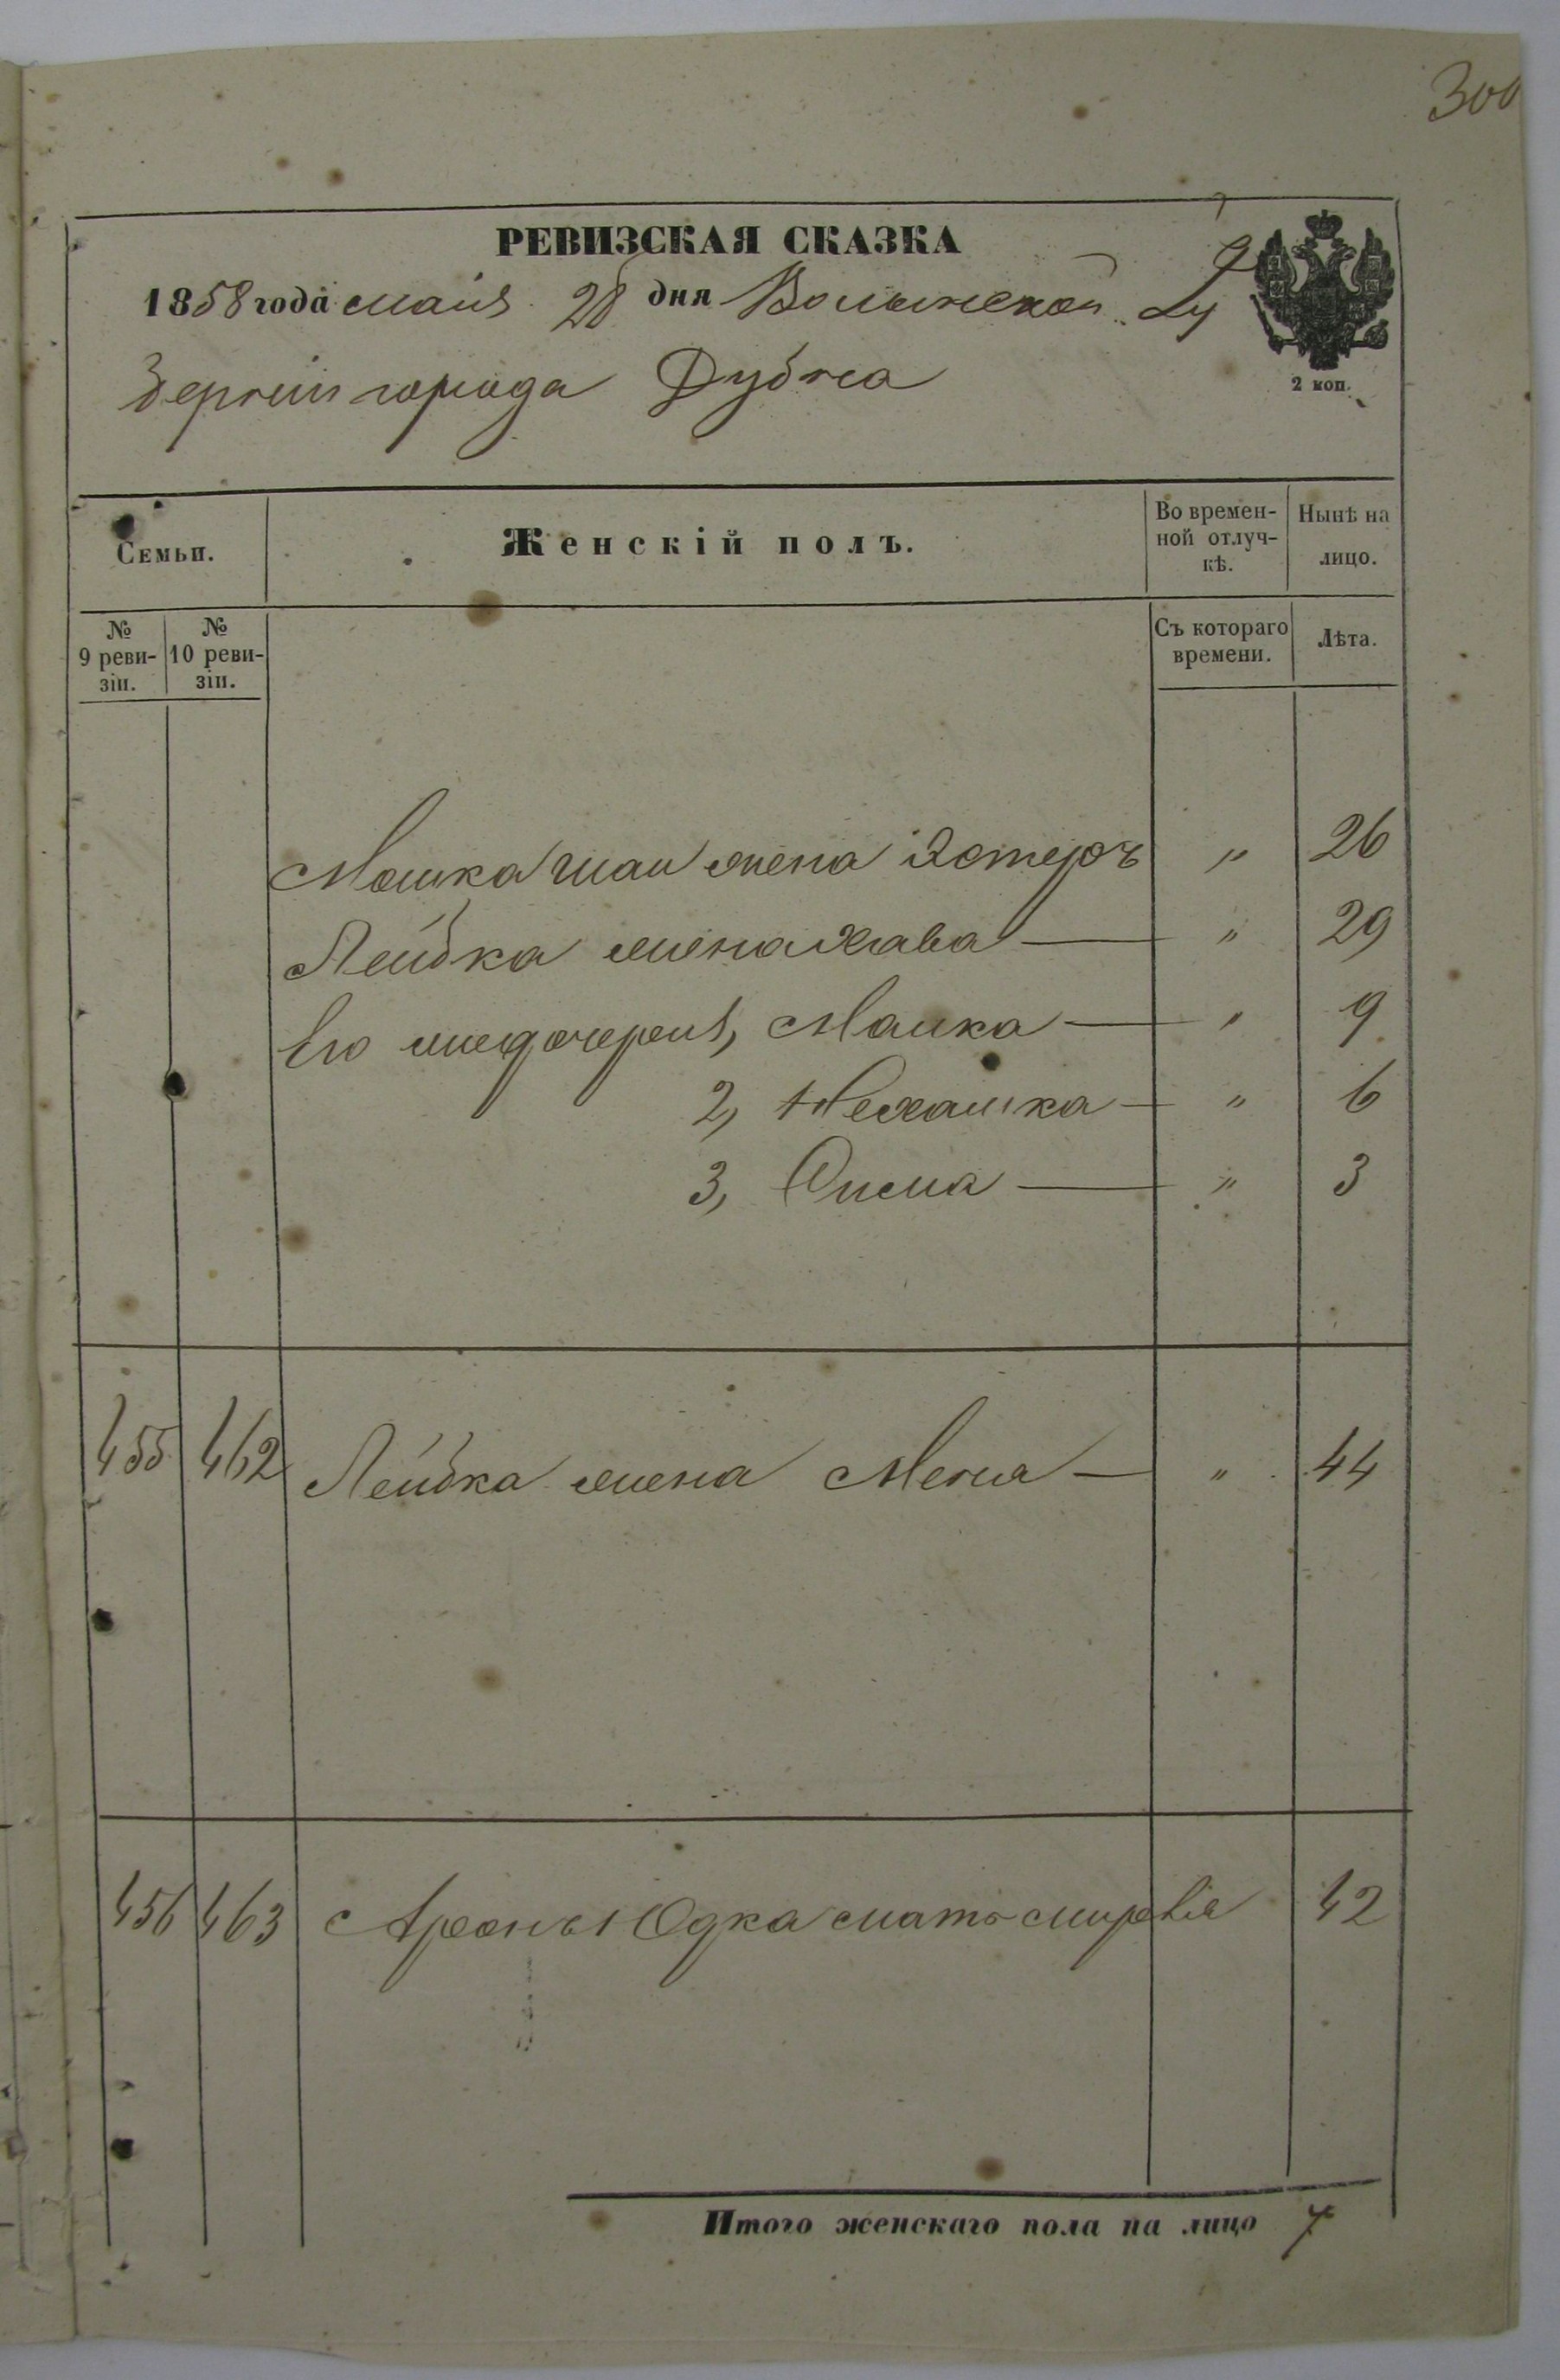 300
РЕВИЗСКАЯ СКАЗКА
1858 года маія 28 дня Волынской Гу
берніи города Дубна
2 коп.
Семьи.
Женскій полъ.
Во времен-
ной отлуч-
кѣ.
Нынѣ на
лицо.
№
9 реви-
зіи.
№
10 реви-
зіи.
Съ котораго
времени.
Лѣта.
Мошка жена Эстеръ " 26
Лейбка жена Хава — " 29
Его дочери 1, Малка — " 9
2, Нехашка — " 6
3, — " 3
455 462 Лейбка жена Меня — " 44
456 463 Арона Юдка мать 42
Итого женскаго пола на лицо 7